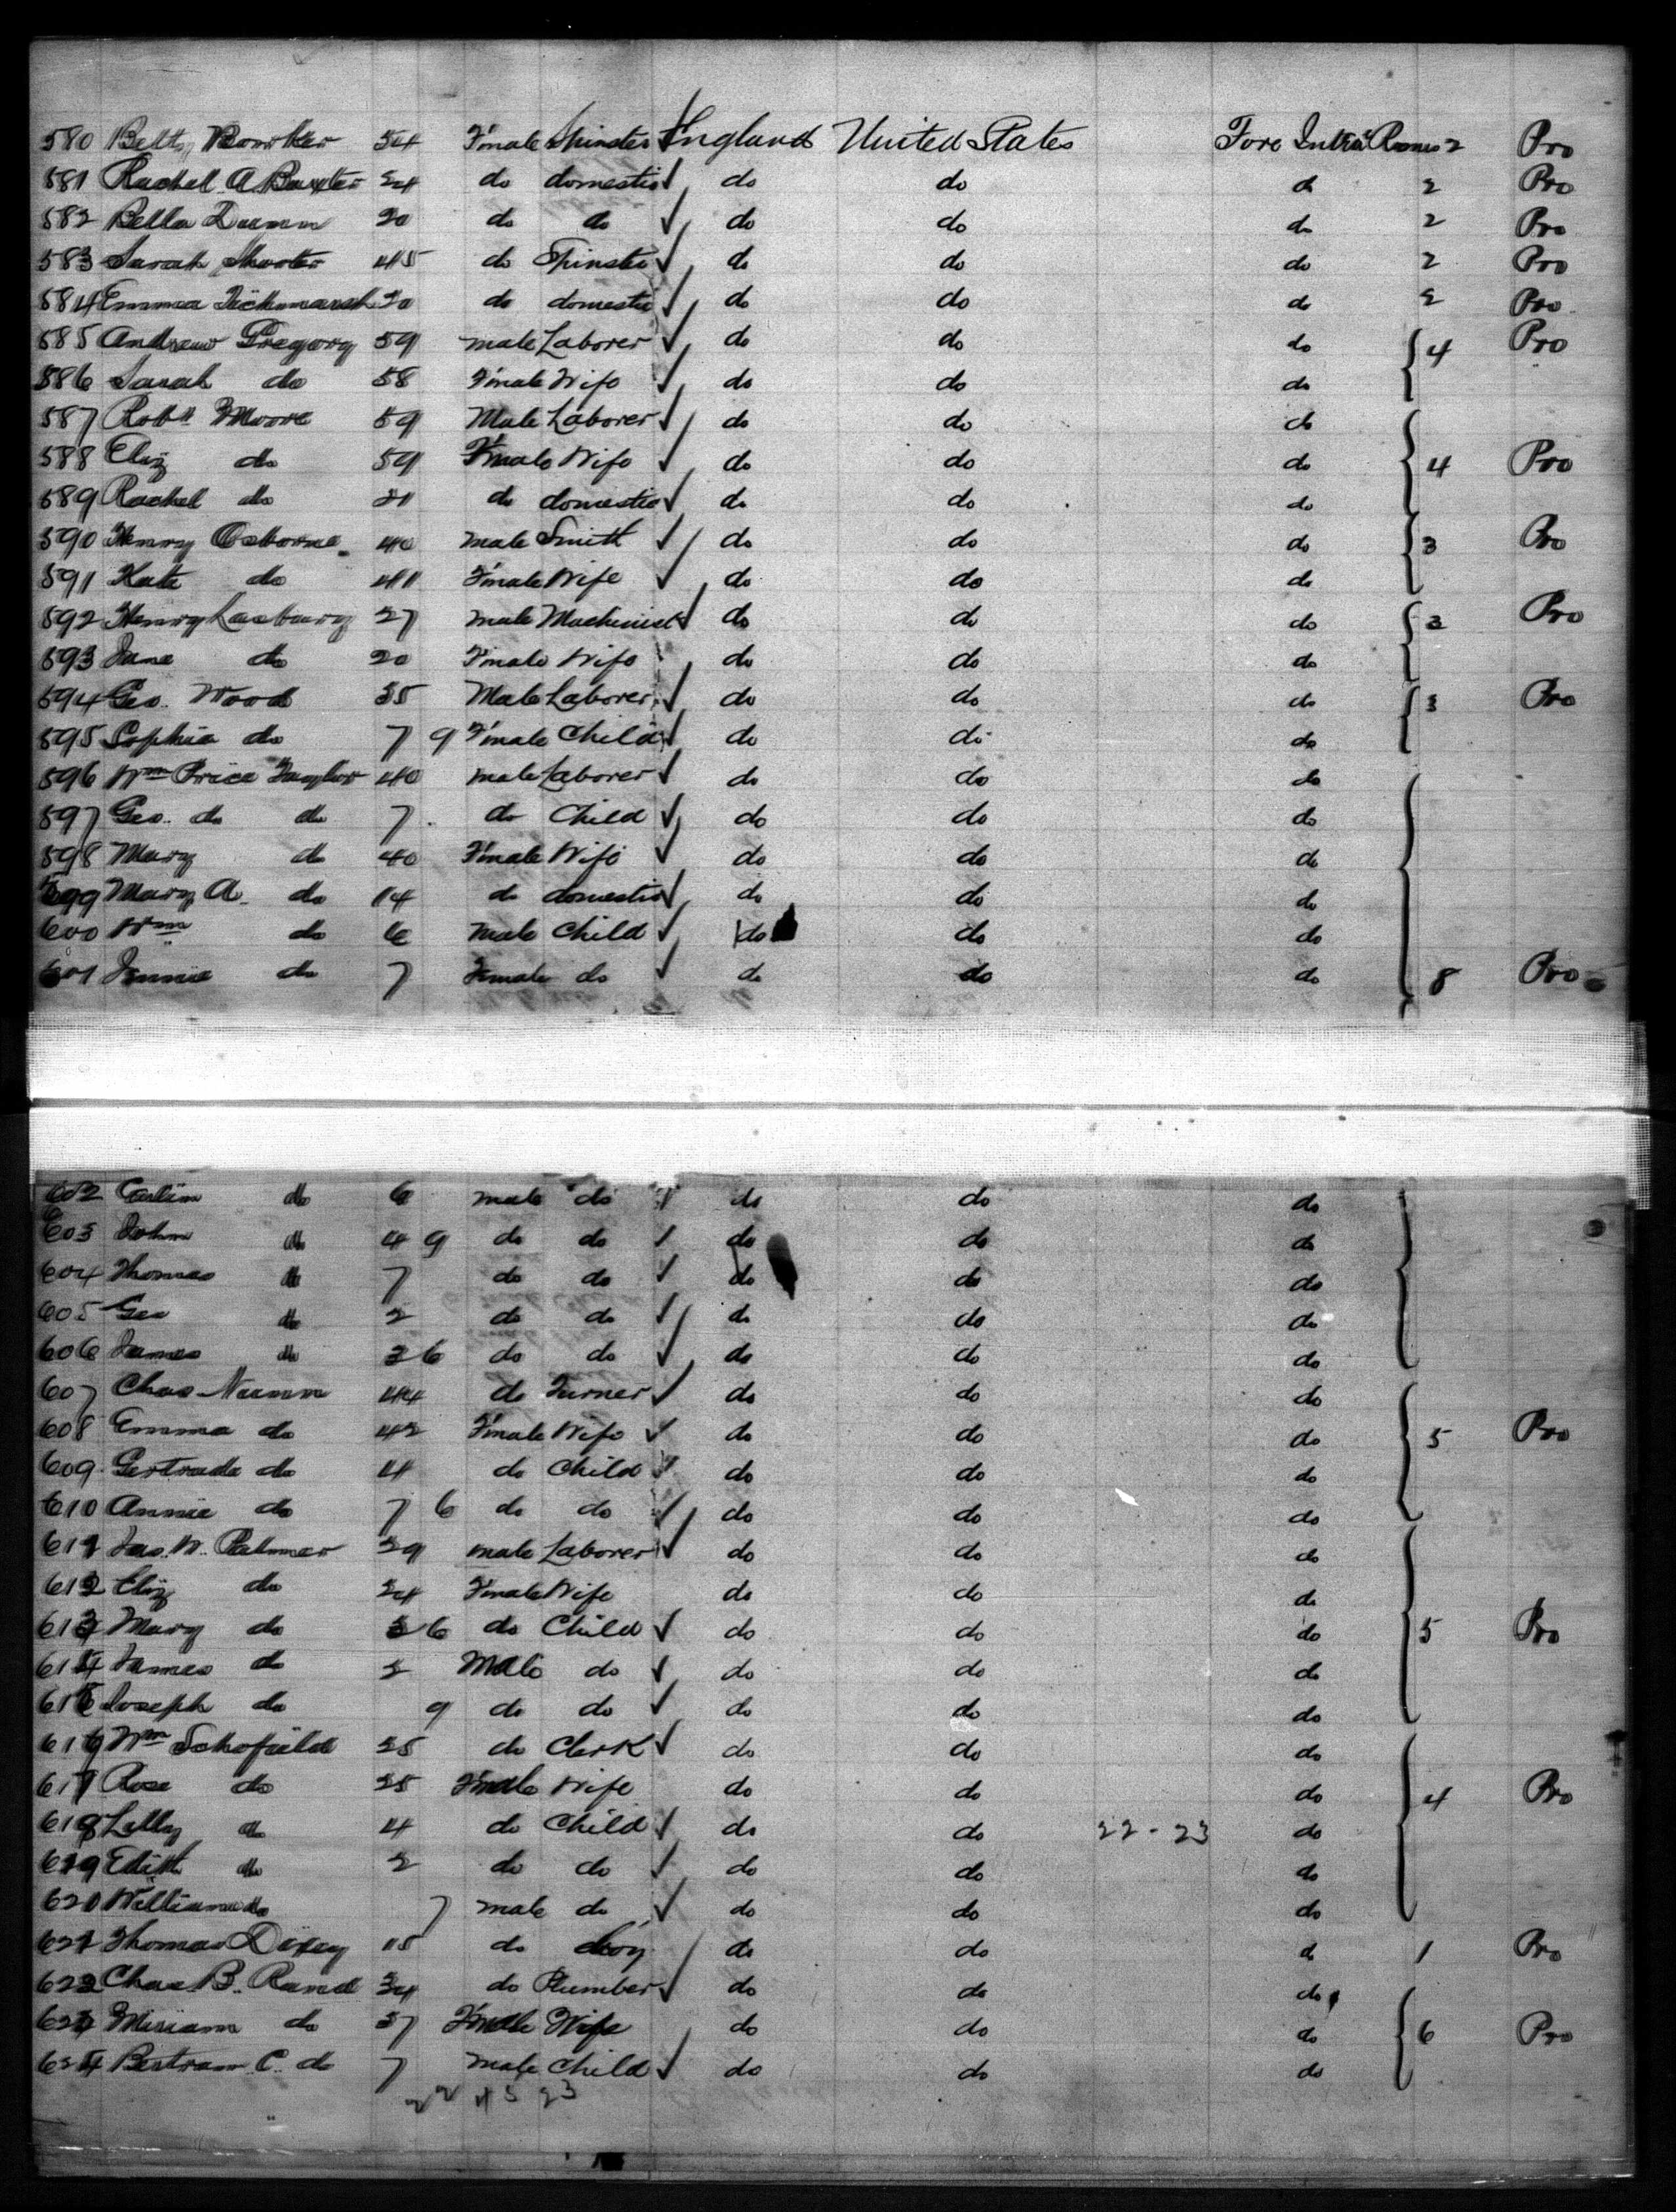 580 Betty Bowker 54 Female Spinster ✓ England United States Fore Inter Rooms 2 Pro
581 Rachel A Baxter 24 do domestic ✓ do do do 2 Pro
582 Bella Dunn 20 do do ✓ do do do 2 Pro
583 Sarah 45 do Spinster ✓ do do do 2 Pro
584 Emma Tichmarsh 20 do domestic ✓ do do do 2 Pro
585 Andrew Gregory 59 male Laborer ✓ do do do 4 Pro
586 Sarah do 58 Female Wife ✓ do do do
587 Robt Moore 59 Male Laborer ✓ do do do
588 Eliz do 59 Female Wife ✓ do do do 4 Pro
589 Rachel do 21 do domestic ✓ do do do
590 Henry Osborne 40 male Smith ✓ do do do 3 Pro
591 Kate do 41 Female Wife ✓ do do do
592 Henry Lasbury 27 male Machinist ✓ do do do 3 Pro
593 Jane do 20 Female Wife do do do
594 Geo. Wood 35 Male Laborer ✓ do do do 3 Pro
595 Sophia do 7 9 Female Child ✓ do do do
596 Wm Price Taylor 40 male Laborer ✓ do do do
597 Geo. do do 7 do Child ✓ do do do
598 Mary do 40 Female Wife ✓ do do do
599 Mary A. do 14 do domestic ✓ do do do
600 Wm do 6 male Child ✓ do do do
601 Jennie do 7 Female do ✓ do do do 8 Pro
602 do 6 male do ✓ do do do
603 John do 4 9 do do ✓ do do do
604 Thomas do 7 do do ✓ do do do
605 Geo do 2 do do ✓ do do do
606 James do 3 6 do do ✓ do do do
607 Chas Nunn 44 do Turner ✓ do do do
608 Emma do 42 Female Wife ✓ do do do 5 Pro
609 Gertrude do 4 do Child ✓ do do do
610 Annie do 7 6 do do ✓ do do do
611 Jas. W. Palmer 29 male Laborer ✓ do do do
612 Eliz do 24 Female Wife do do do
613 Mary do 3 6 do Child ✓ do do do 5 Pro
614 James do 2 Male do ✓ do do do
615 Joseph do 9 do do ✓ do do do
616 Wm Schofield 25 do Clerk ✓ do do do
617 Rose do 25 Female Wife do do do 4 Pro
618 Lilly do 4 do Child ✓ do do 22-23 do
619 Edith do 2 do do ✓ do do do
620 William do 7 male do ✓ do do do
621 Thomas Dixey 15 do boy do do do 1 Pro
622 Chas B. Rand 34 do Plumber ✓ do do do
623 Miriam do 37 Female Wife do do do 6 Pro
624 Bertram C. do 7 male Child ✓ do do do
22 45 23